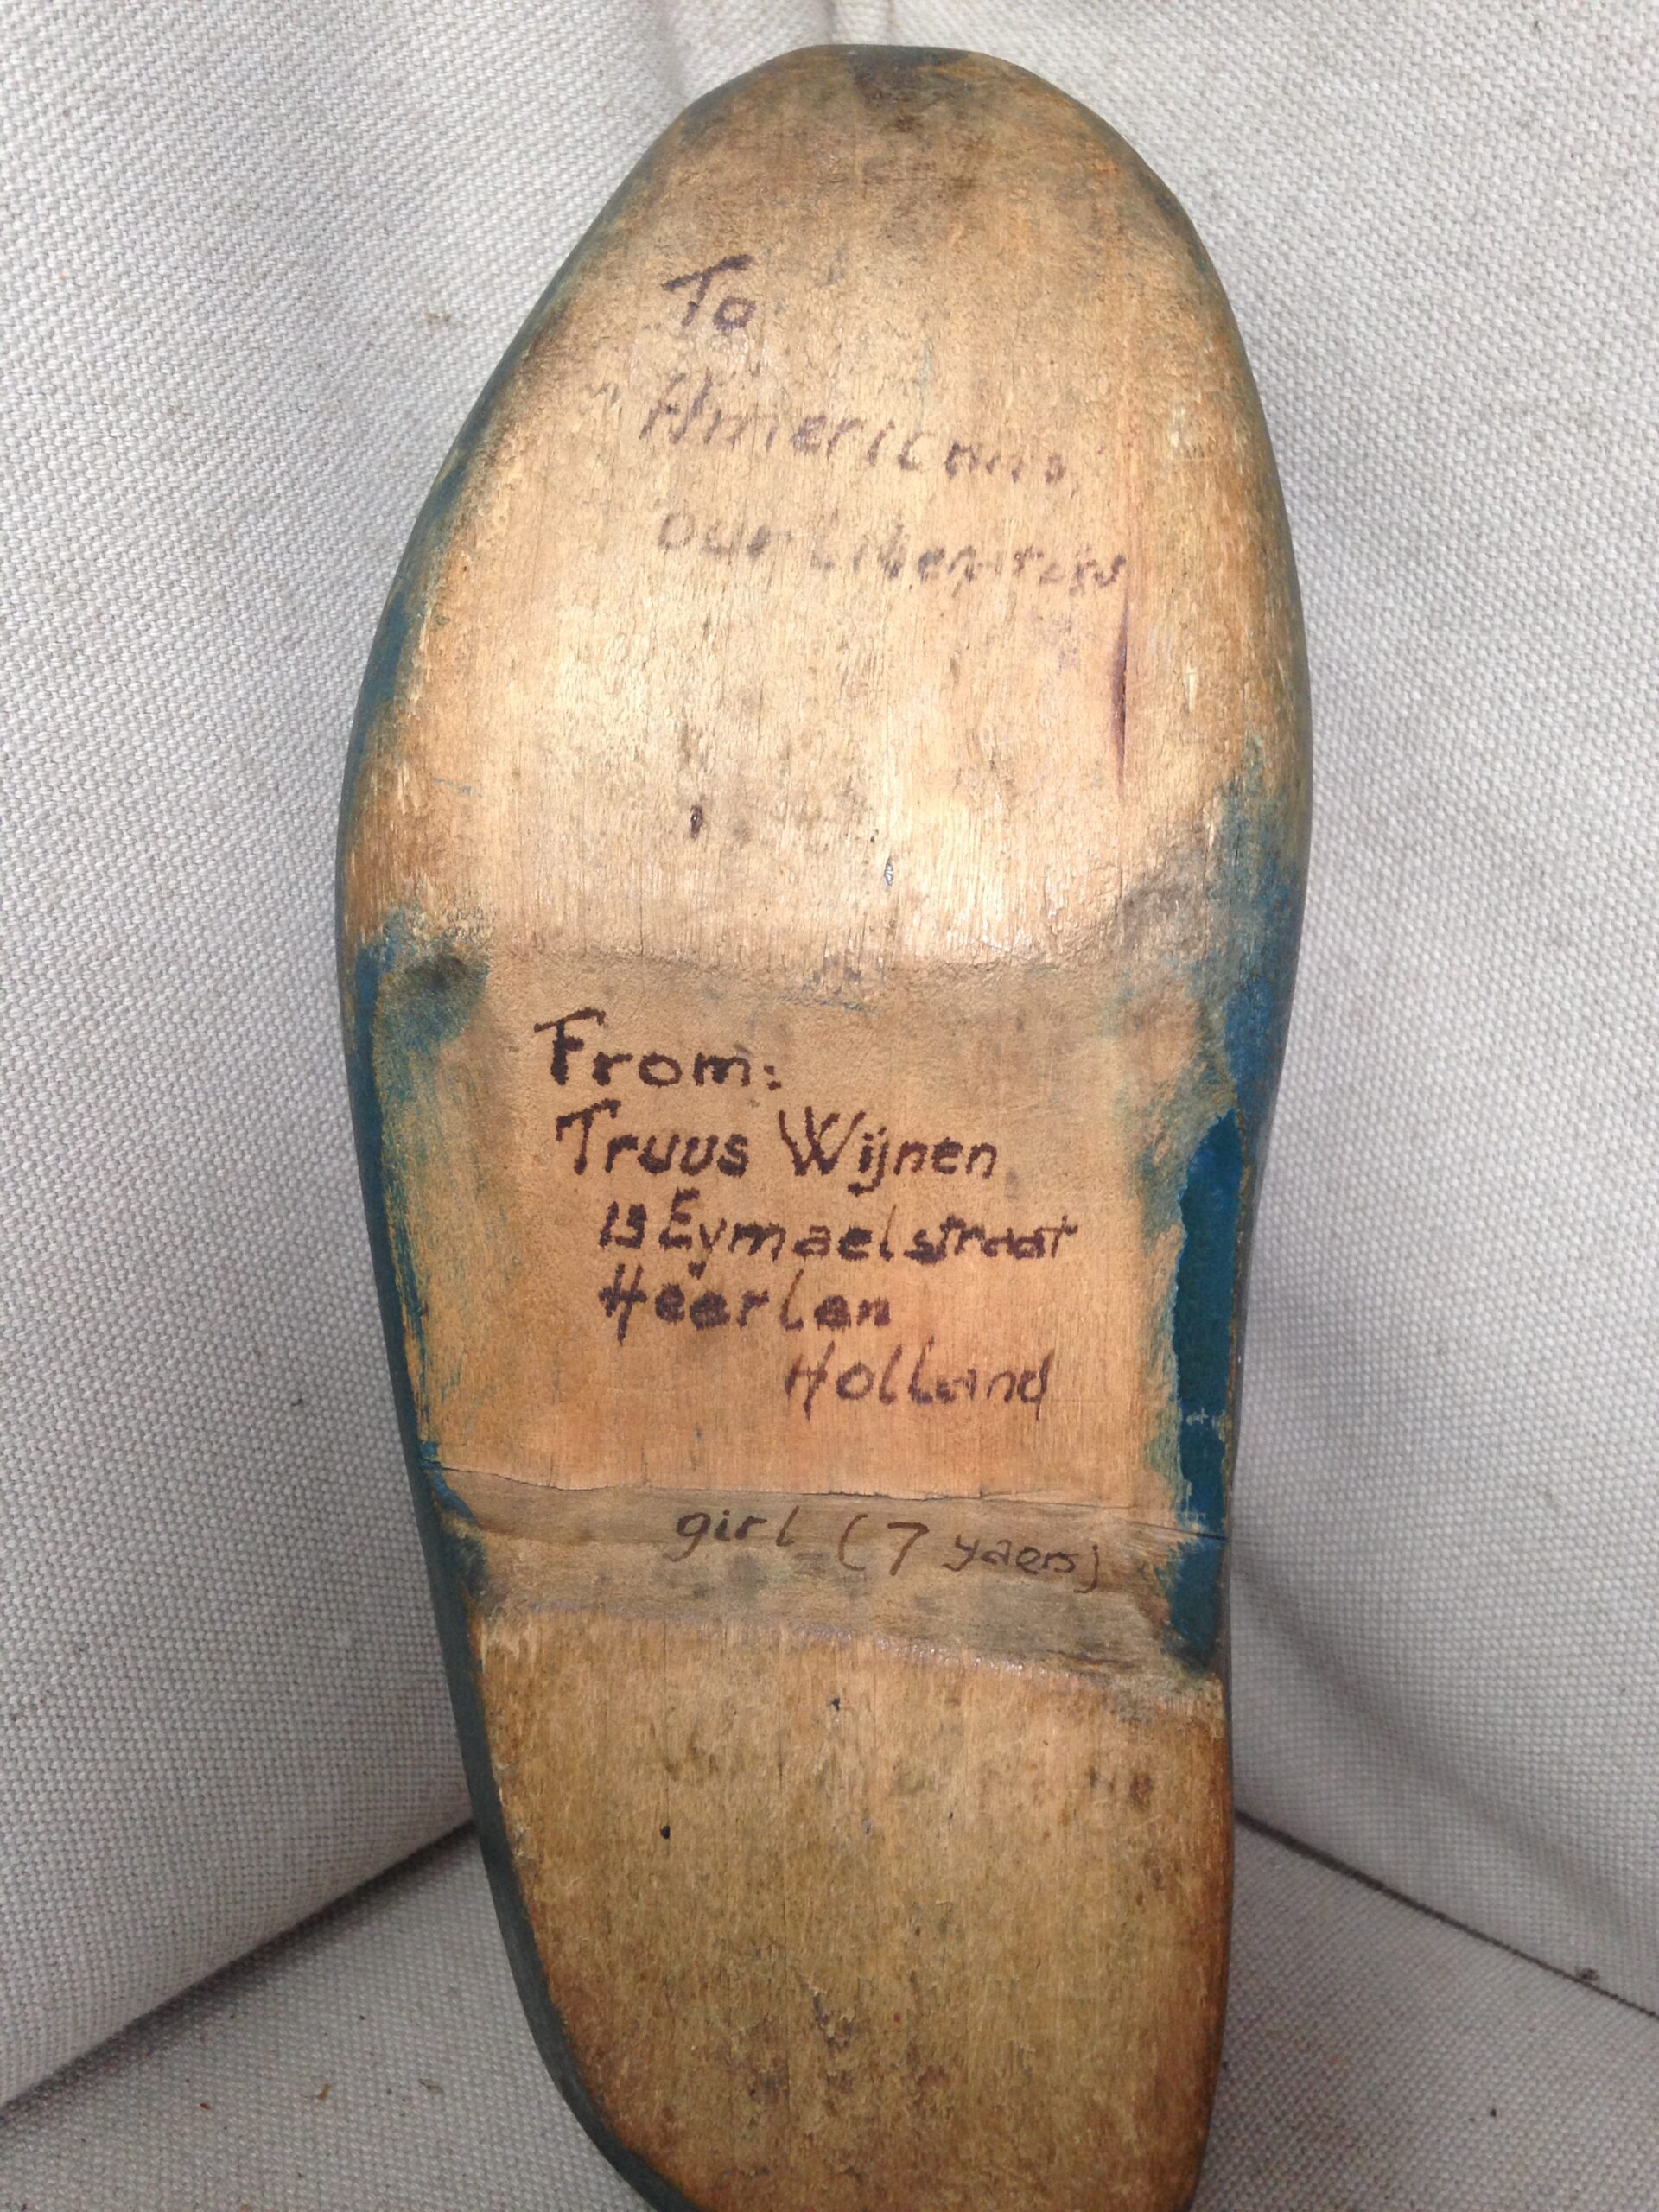 To
Americans,
our Liberators
From:
Truus Wijnen
19 Eymaelstraat
Heerlen
Holland
girl (7 yaers)